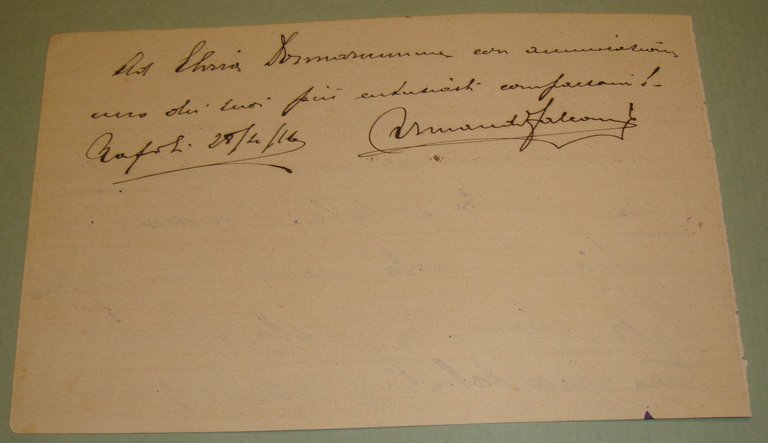 Ad Elvira Donnarumma con ammirazione
uno dei suoi più entusiasti compaesani
Napoli 28/4/16 Armando Falconi